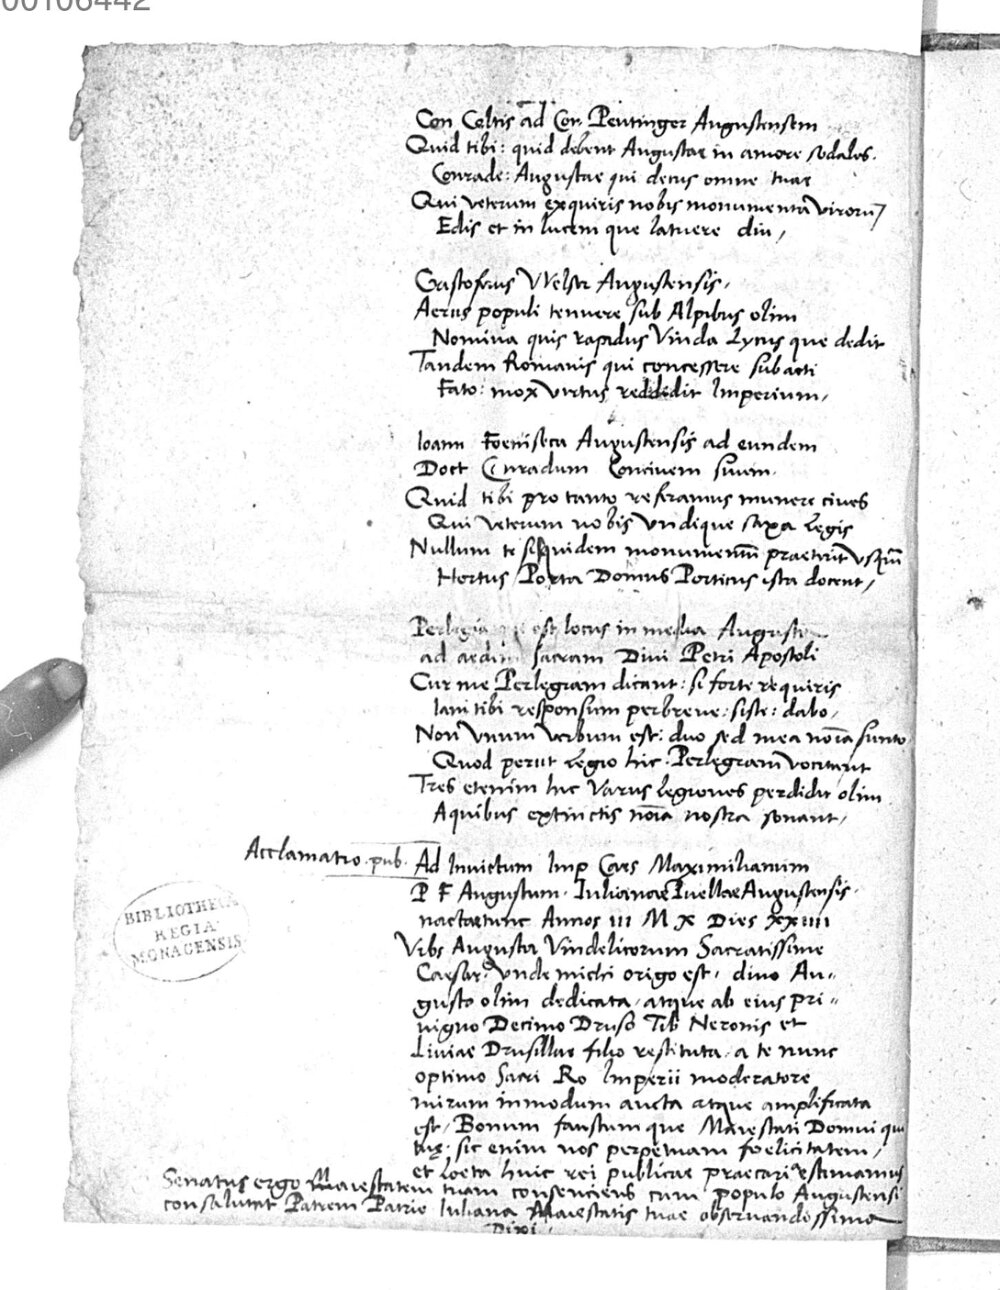 00106442
Con Celtis ad Con Peutinger Augustensem
Quid tibi: quid debent Augustae in amore sodales.
Conrade: Augustae qui decus omne tuae
Qui veterum exquiris nobis monumenta virorū
Edis et in lucem que latuere diu,
Cristoferus Welser Augustensis,
populi tenuere sub Alpibus olim
Nomina quis rapidus Vinda Lycus que dedit
Tandem Romanis qui concessere subacti
Fato: mox virtus reddidit Imperium,
Ioann Foeniseca Augustensis ad eundem
Doct Conradum Concivem suum.
Quid tibi pro tanto referamus munere cives
Qui veterum nobis undique saxa legis
Nullum te siquidem monumentū praeterit usquā
Hortus Porta Domus Porticus ista docent,
est locus in media Augusta
ad aedem sacram Divi Petri Apostoli
Cur me Perlegiam dicant: si forte requiris
Iam tibi responsum perbreve: siste: dabo,
Non unum verbum est: duo sed mea noīa sunto
Quod periit Legio hic. Perlegiam vocitarūt
Tres etenim hic Varus legiones perdidit olim
Aquibus extinctis noīa nostra sonant,
Acclamatio. pub.
Ad Invictum Imp Caes Maximilianum
P F Augustum. Iulianae Puellae Augustensis.
natae tunc Annos III M X Dies XXIIII
Urbs Augusta Vindelicorum Sacratissime
Caesar, unde michi origo est, divo Au-
gusto olim dedicata, atque ab eius pri-
vigno Decimo Druso Tib Neronis et
Liviae Drusillae filio restituta, a te nunc
optimo Sacri Ro Imperii moderatore
mirum inmodum aucta atque amplificata
est, Bonum faustum que Maiestati Domui que
tuę: sic enim nos perpetuam foelicitatem,
et Loeta huic rei publicae praecari estimamus
Senatus ergo Maiestatem tuam consenciens cum populo Augustensi
consalutat Patrem Patrie Iuliana Maiestatis tuae observandissima
Dixi.
BIBLIOTHECA
REGIA
MONACENSIS